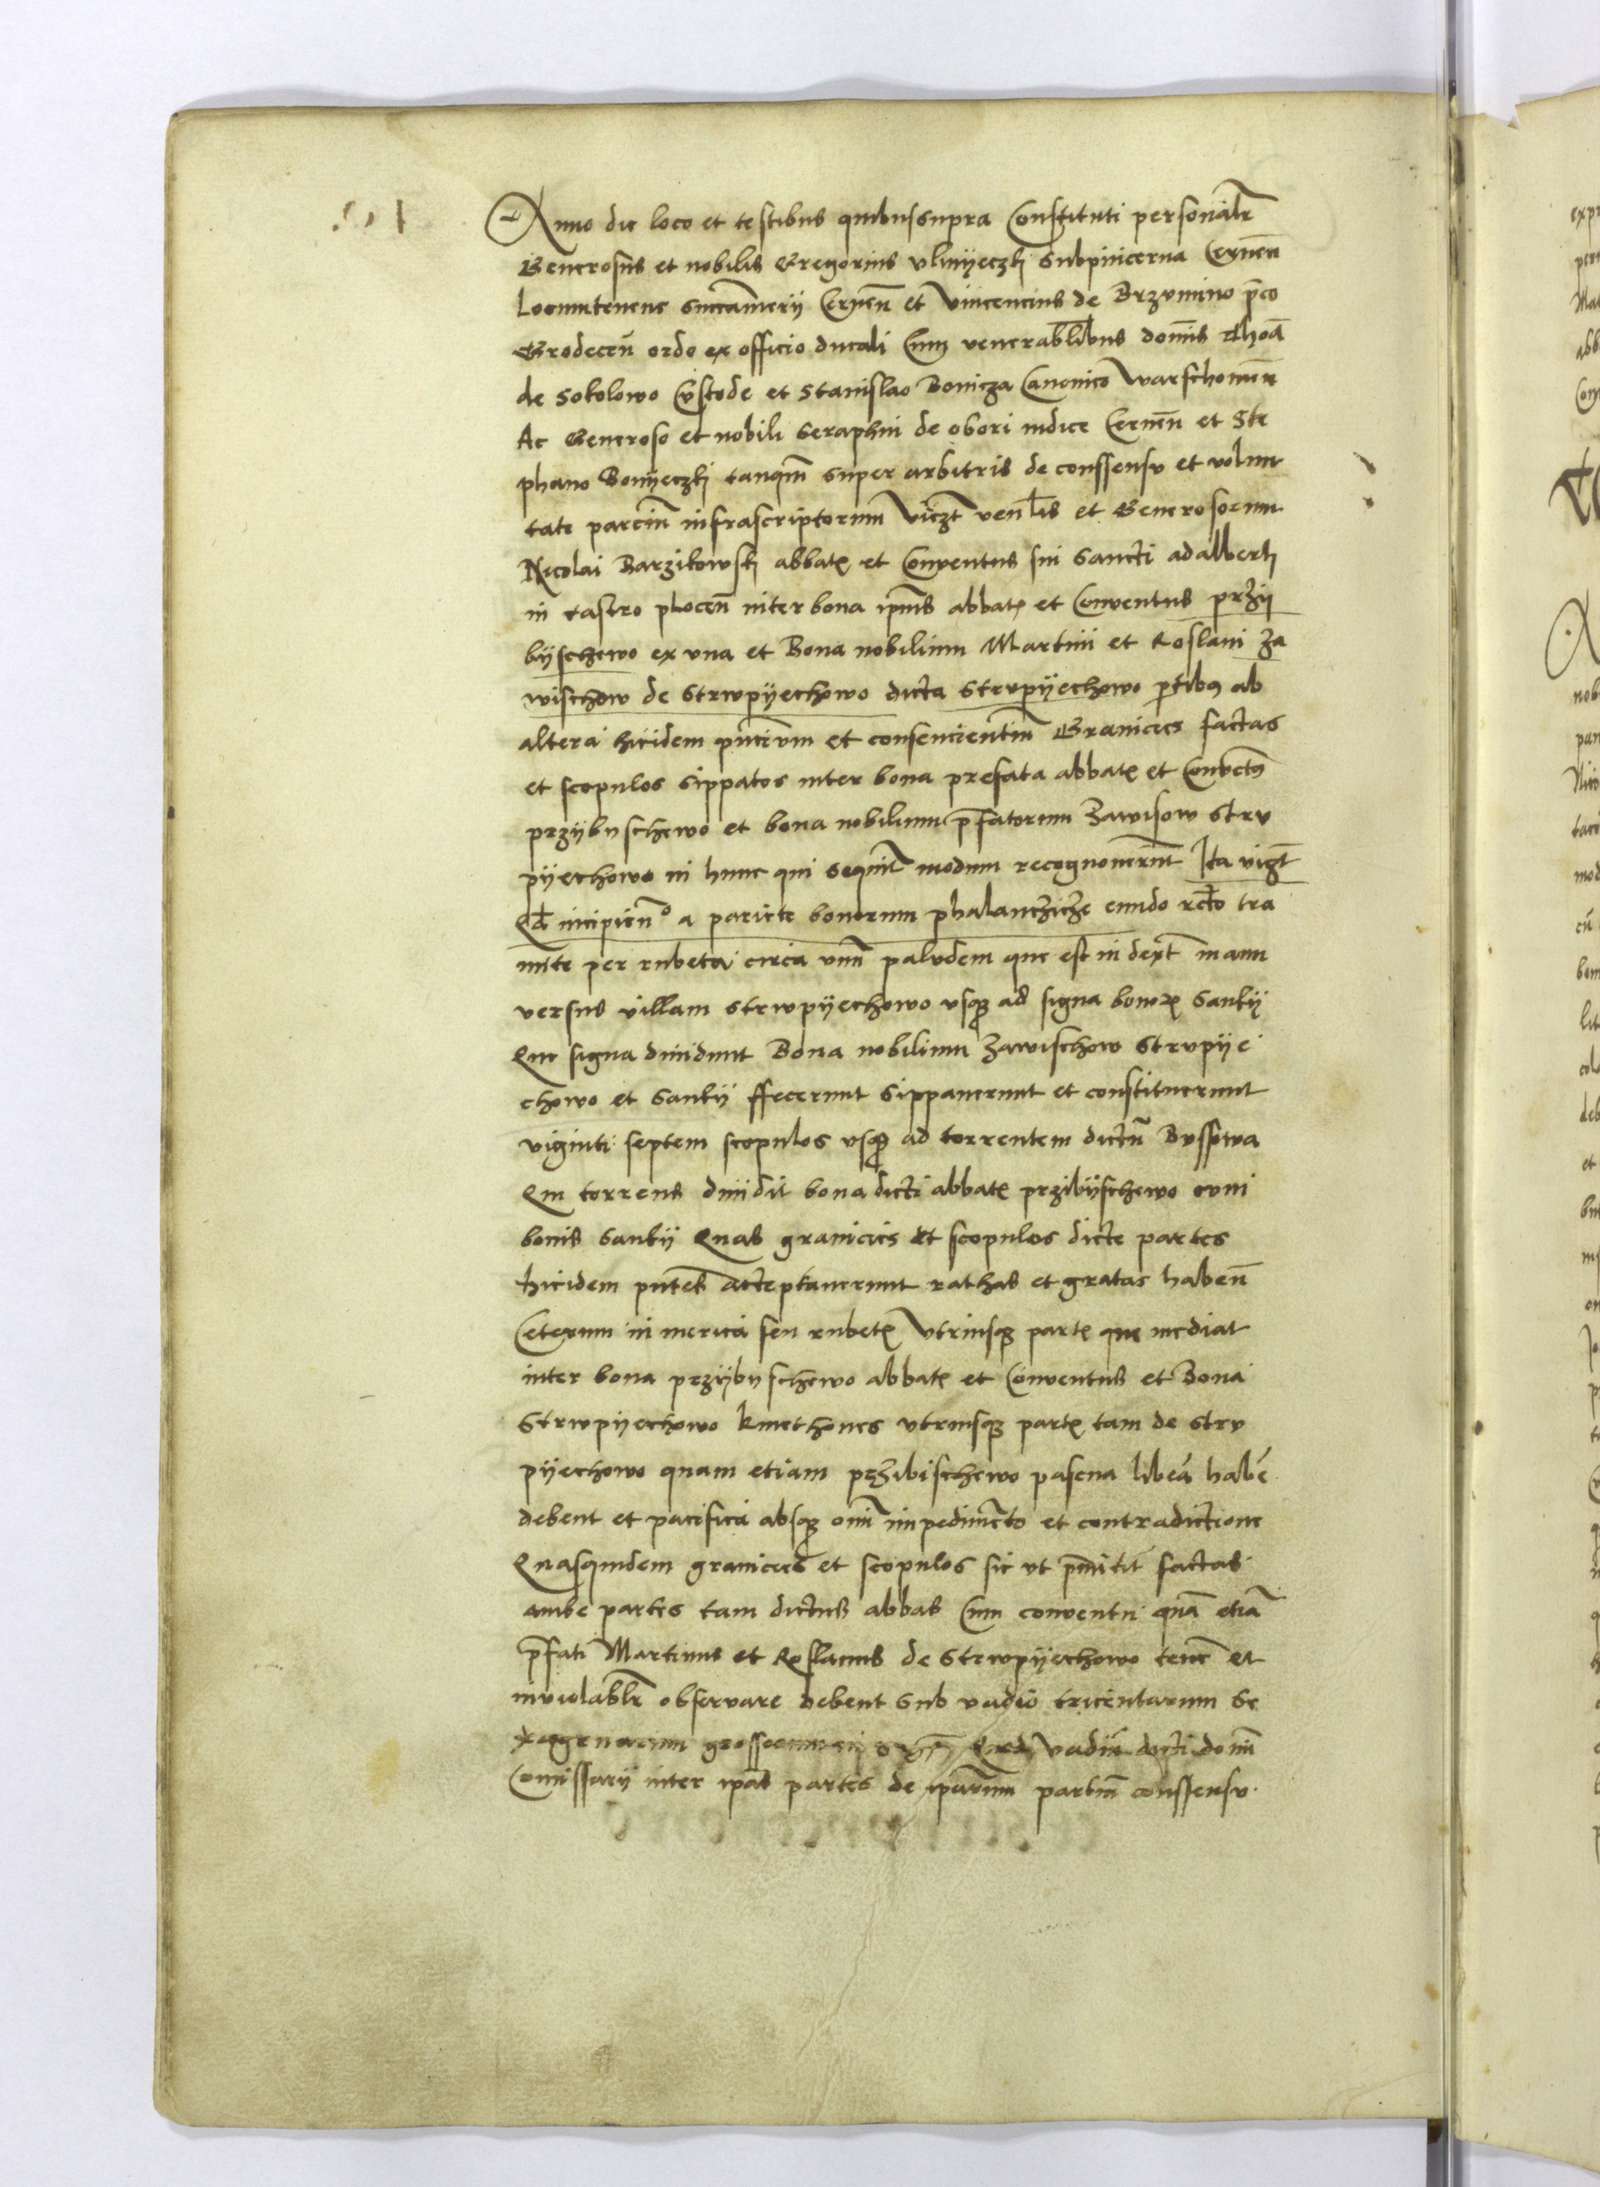 Anno die loco et testibus quibussupra Constituti personalr̃
Generosus et nobilis Gregorius vlinyeczkj Subpincerna Cernen̄
Locumtenens succam̄erij Cernen̄ et Vincencius de Brzumino p̄co
Grodecen̄ ordo ex officio ducali Cum venerabl̄ibus domīs Thoā
de Sokolowo Cv̄stode et Stanislao Bonicza Canonico Warschouien̄
Ac Generoso et nobili Seraphin de obori iudice Cernen̄ et Ste
phano Bonyeczkj tanqm̄ super arbitris de conssensu et volun
tate parciu̅ infrascriptorum Viczt̄ venl̄is et Generosorum
Nicolai Bargikowskj abbatꝭ et Conventus sui Sancti adalberti
in castro plocen̄ inter bona ip̄ius abbatꝭ et Conventus przij
byschewo ex vna et Bona nobilium Martini et Roslani Za
wischow de Strwpyechowo dicta Strvpyechowo p̄tibꝫ ab
altera hicidem pn̄cium et consencientiu̅ Granicies factas
et scopulos sippatos inter bona prefata abbatꝭ et Conuetꝫ
przybyschewo et bona nobilium p̄fatorum Zawisow Strv
pyechowo in hunc qui sequit̄ modum recognouerūt Ita vigt̄
Qd̄ incipien° a pariete bonorum phalanczicze eundo rct̄o tra
mite per rubeta circa vnā palvdem que est in dext̄ manu
versus villam Strwpyechowo vsqꝫ ad signa bonorꝭ Gankij
Que signa diuidunt Bona nobilium Zawischow Strvpije
chowo et Gankij ffecerunt Sippauerunt et constituerunt
viginti septem scopulos vsqꝫ ad torrentem dictū Bvssowa
Qui torrens diuidit bona dicti abbatꝭ przibyschewo cum
bonis Gankij Quas granicies et scopulos dicte partes
hicidem pn̄tes acceptauerunt rathas et gratas haben̄
Ceterum in merica seu rubetꝭ Vtriusqꝫ partꝭ que mediat
inter bona przybyschewo abbatꝭ et Conventus et Bona
Strwpyechowo kmethones vtriusqꝫ partꝭ tam de Strv
pyechowo quam etiam przibischewo pascua libeā habē
debent et pacifica absqꝫ om̄i impedimēto et contradictione
Quasquidem granicies et scopulos sic vt p̄mitit̄ factas
ambe partes tam dictus abbas Cum conventu quā etiā
p̄fati Martinus et Roslanus de Strwpyechowo tenē et
inviolablr̄ observare debent Sub vadio tricentarum Se
xagenarum grossorum Quod vadiū dicti domī
Com̄issarij inter ip̄as partes de ip̄arum partiu̅ conssensu